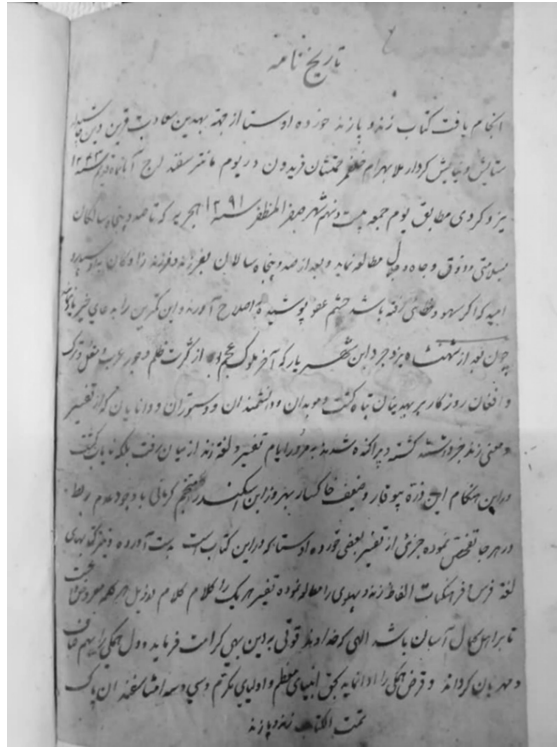 تاریخ نامه
انجام یافت کتاب زند و پازند خورده اوستا از جهة بهدین سعادت قرین
ستایش و نیایش کردار ملا بهرام خلف جنتمکان فریدون در یوم سنه ۱۲۴۳
یزدگردی مطابق یوم جمعه بیست و نهم شهر صفر المظفر سنه ۱۲۹۱ هجریه که تا صد و پنجاه سالکان
بسلامتی و ذوق و جاه و مطالعه نماید و بعد از صد و پنجاه سالان بفرزند و فرزند زادگان بسپارد
امید که اگر سهو و غلطی رفته باشد بچشم عفو پوشیده باصلاح آورند و این کمترین را بدعای خیر
چون بعد از شهنشاه یزدجرد ابن شهریار که آخر ملوک عجم بود از کثرت ظلم و جور عرب و مغل و ترک
و افغان روزگار بر بهدینان تباه گشت و موبدان و دانشمندان و دستوران و دانایان که از تفسیر
و معنی زند گشته و پراکنده شدند بمرور ایام تغییر و لغة زند از میان رفت بلکه نایاب گشت
در این هنگام این ذرة بیمقدار و ضعیف خاکسار بهروز ابن اسکندر کرمانی با وجود عدم ربط
در هر جا تفحص نموده جزئی از تفسیر بعضی خورده اوستا که در این کتاب است بدست آورده و
لغة فرس و فرهنگهات الفاظ زند و پهلوی را مطالعه نموده تفسیر هر یک را کلام کلام در ذیل هر کلمه
تا بر اهل کمال آسان باشد الهی که خداوند قوتی به دین بهی کرامت فرماید و دل همگی را بهم صاف
و مهربان گرداند و قرض همگی را ادا نماید بحق انبیای معظم و اولیای مکرم و سی و سه امشاسفندان پاک
تمت الکتاب زند و پازند